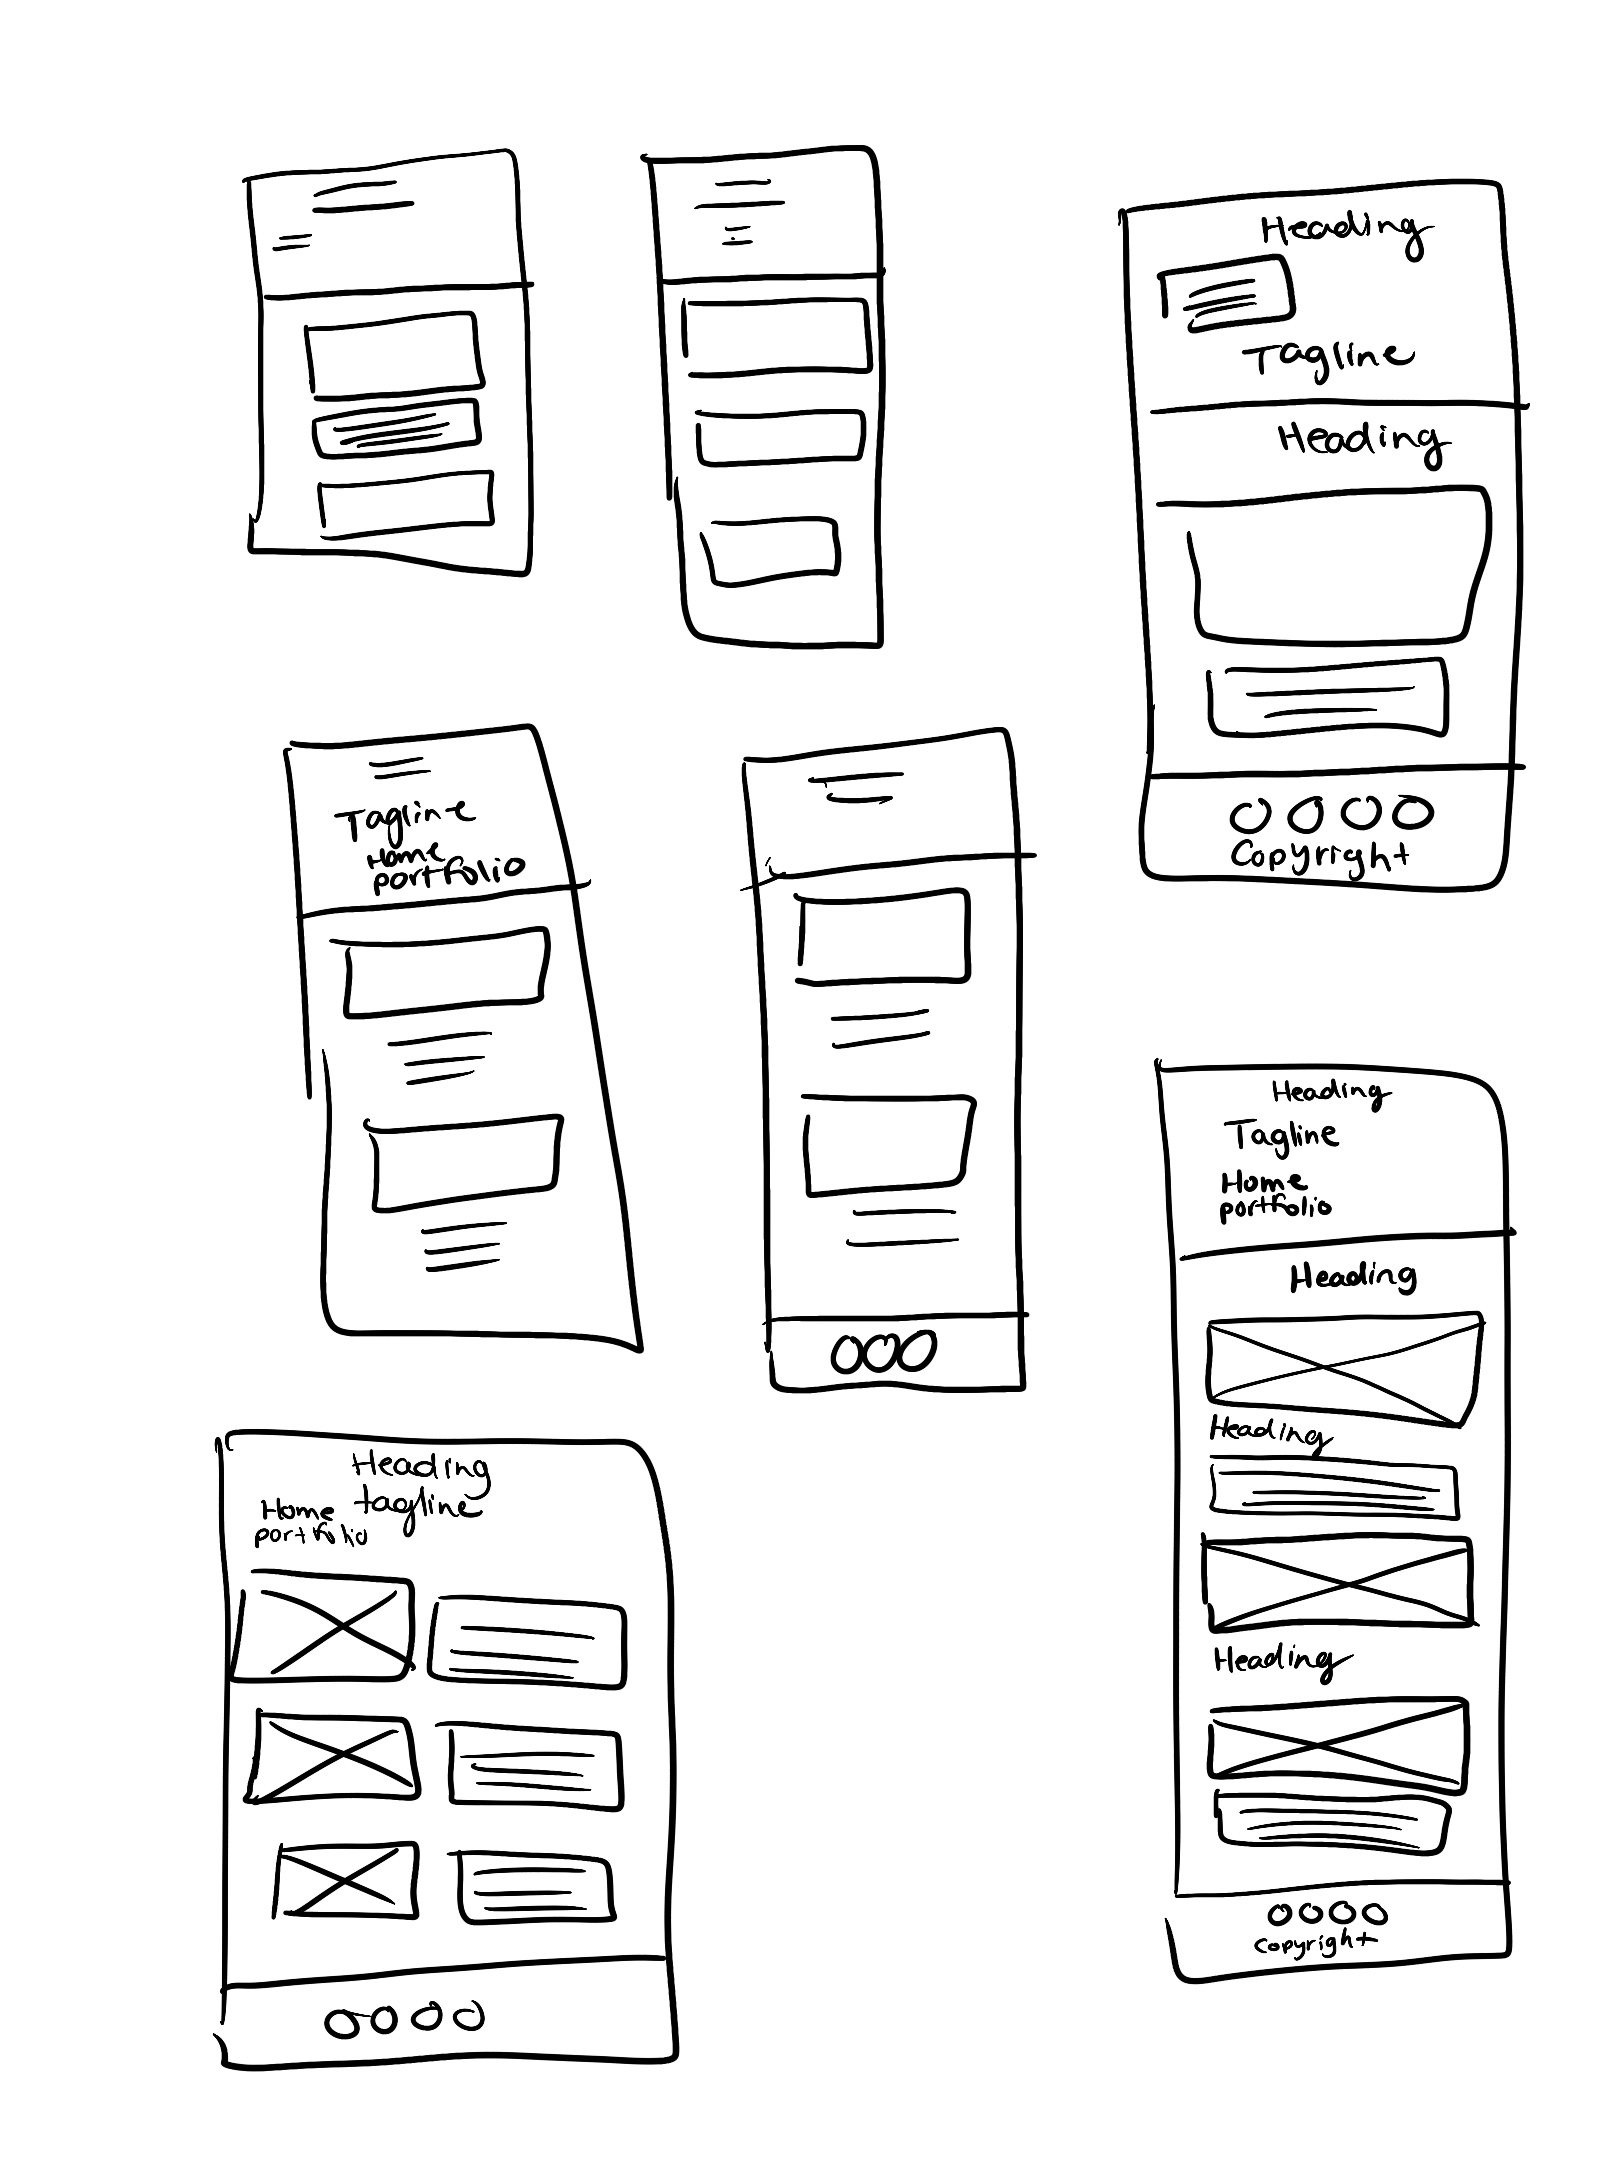 Heading
Tagline
Heading
Copyright
Tagline
Home
portfolio
Heading
Tagline
Home
portfolio
Heading
Heading
Heading
Copyright
Heading
tagline
Home
portfolio